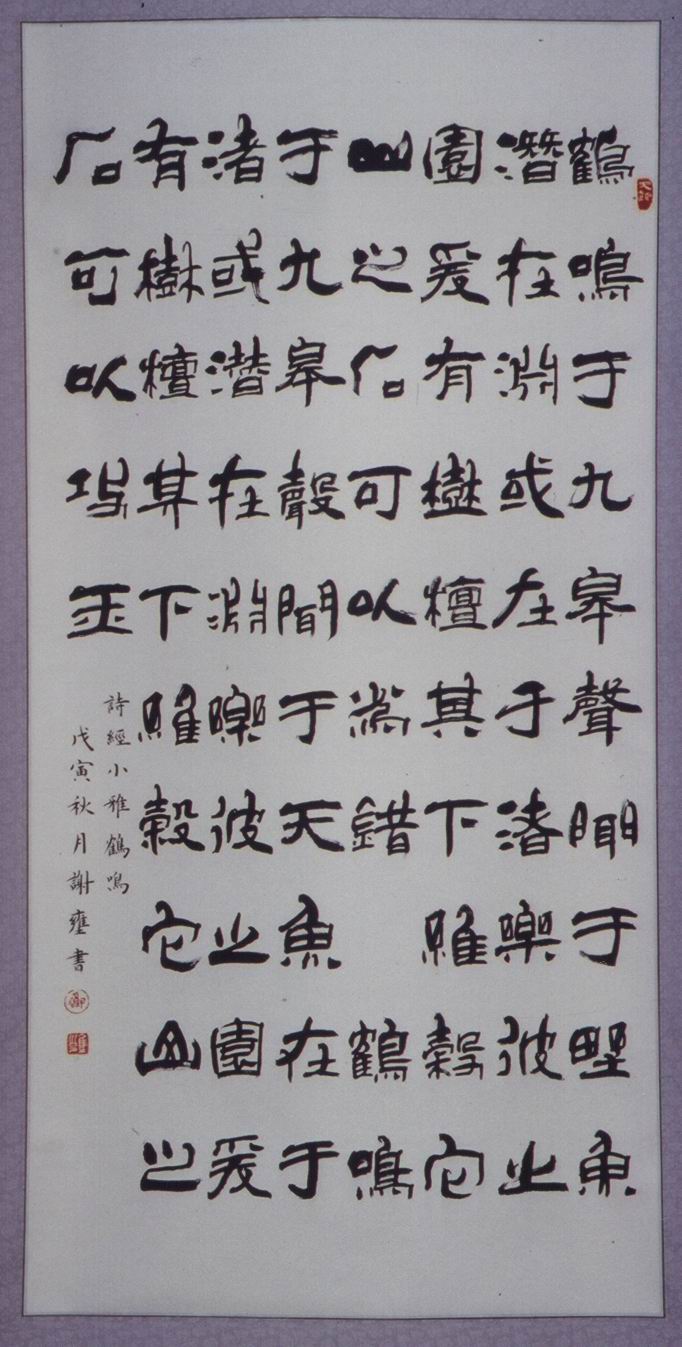 鶴鳴于九皋聲聞于野魚
潛在淵或在于渚樂彼之
園爰有樹檀其下維穀它
山之石可以為錯 鶴鳴
于九皋聲聞于天魚在于
渚或潛在淵樂彼之園爰
有樹檀其下維穀它山之
石可以攻玉
詩經小雅鶴鳴
戊寅秋月謝壅書